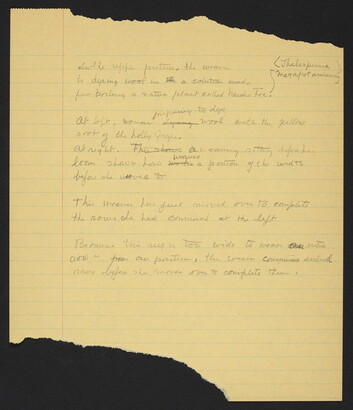 In the upper picture, the woman
is dyeing wool in a solution made
from boiling a native plant called Navajo Tea.
(Thelesperma
megapotamicum)
preparing to dye
At left, woman dyeing wool with the yellow
root of the Holly Grape.
At right. This shows a weaving sitting before her
loom shows how weaves a portion of the width
before she moves to
This weaver has just moved over to complete
the rows she had commenced at the left
Because this rug is too wide to weave an entire
row from one position, the woman commences several
rows before she moves over to complete them.